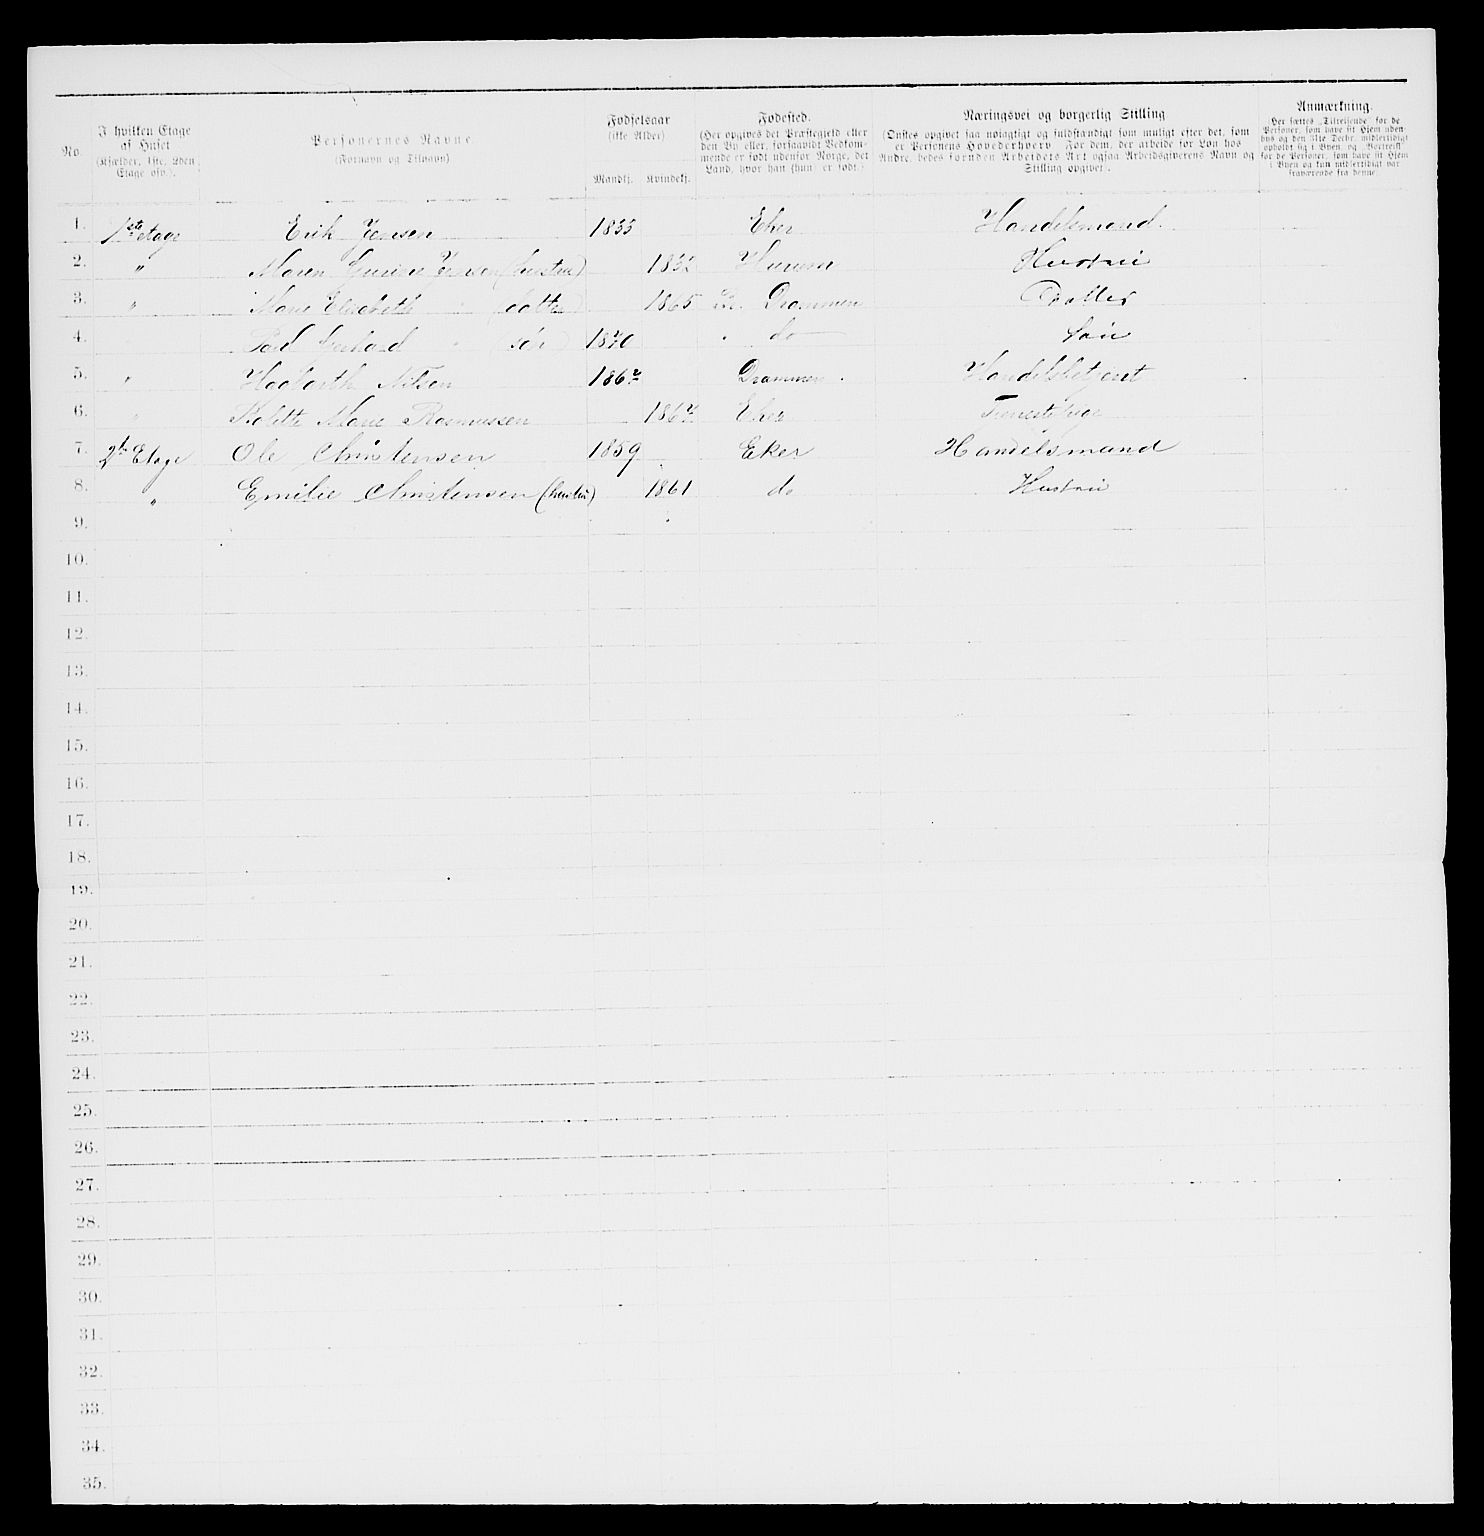 No.
I hvilken Etage af Huset (Kjælder, 1ste, 2den Etage osv.).
Personernes Navne (Fornavn og Tilnavn)
Fødselsaar (ikke Alder) Mandkj. Kvindekj.
Fødested. (Her opgives det Præstegjeld eller den By eller, forsaavidt Vedkommende er født udenfor Norge, det Land, hvor han (hun) er født.)
Næringsvei og borgerlig Stilling (Ønskes opgivet saa nøiagtigt og fuldstændigt som muligt efter det, som er Personens Hovederhverv. For dem, der arbeide for Løn hos Andre, bedes foruden Arbeidets Art ogsaa Arbeidsgiverens Navn og Stilling opgivet).
Anmærkning. Her sættes „Tilreisende“ for de Personer, som have sit Hjem udenbys og den 31te Decbr. midlertidigt opholdt sig i Byen, og „Bortreist“ for de Personer, som have sit Hjem i Byen og kun midlertidigt var fraværende fra denne.
1. 1ste etage Erik Jensen 1833 Eker Handelsmand.
2. " Maren Jensen (hustru) Hurum Hustru
3. " Marie Elisabeth " (datter) 1865 Drammen Datter
4. " (søn) 1870 do Søn
5. " Hagbarth Nilsen Drammen Handelsbetjent
6. " Kolette Marie Rasmussen Eker Tjenestepige
7. 2de Etage Ole Christensen 1859 Eker Handelsmand
8. " Emilie Christensen (hustru) 1861 do Hustru
9.
10.
11.
12.
13.
14.
15.
16.
17.
18.
19.
20.
21.
22.
23.
24.
25.
26.
27.
28.
29.
30.
31.
32.
33.
34.
35.